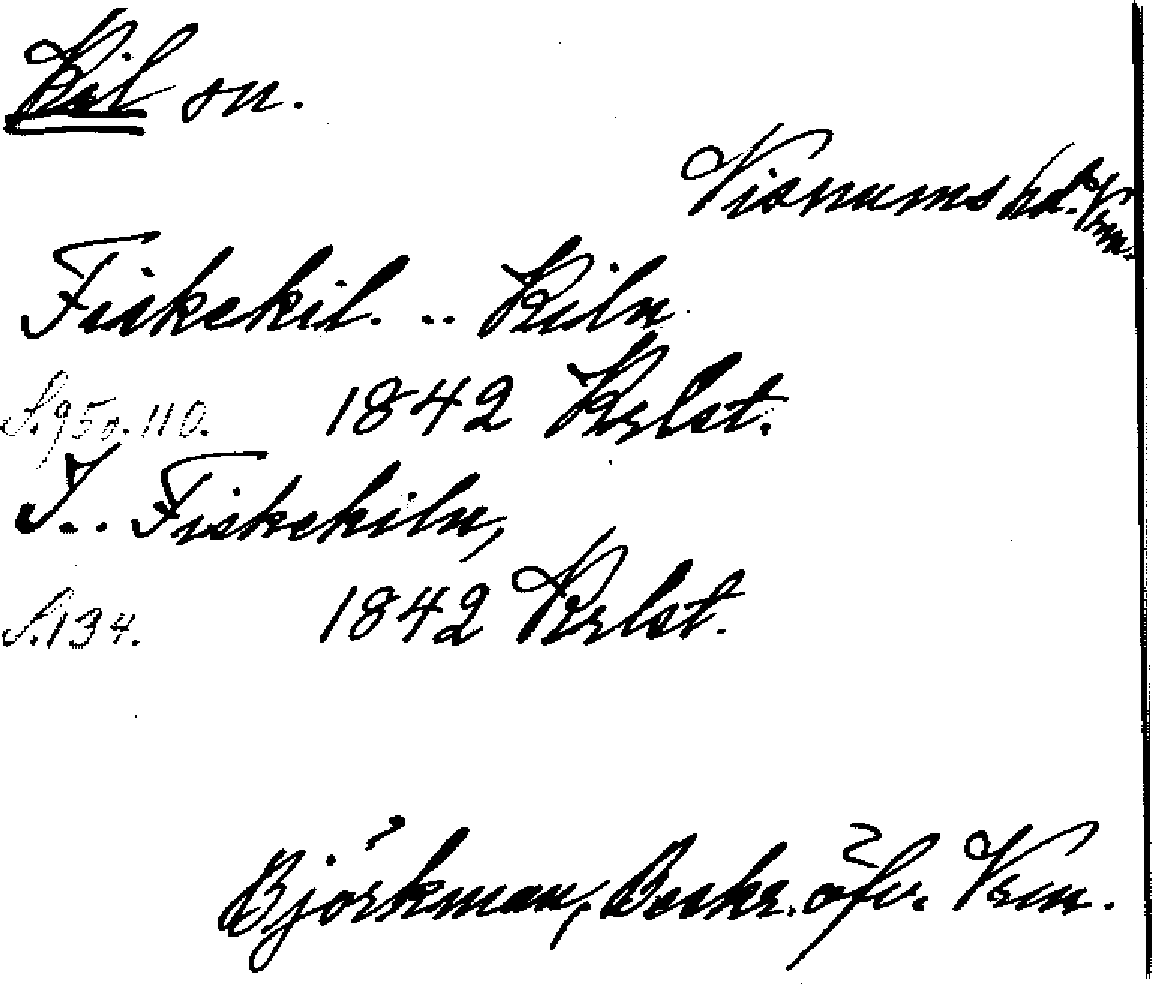 Kil sn.
Visnums hd. Vrm.
Fiskekil. .. Kiln
S. 95 o. 110. 1842 Krlst.
I.. Fiskekiln,
S. 134. 1842 Krlst.
Björkman, Beskr. öfv. Vrm.